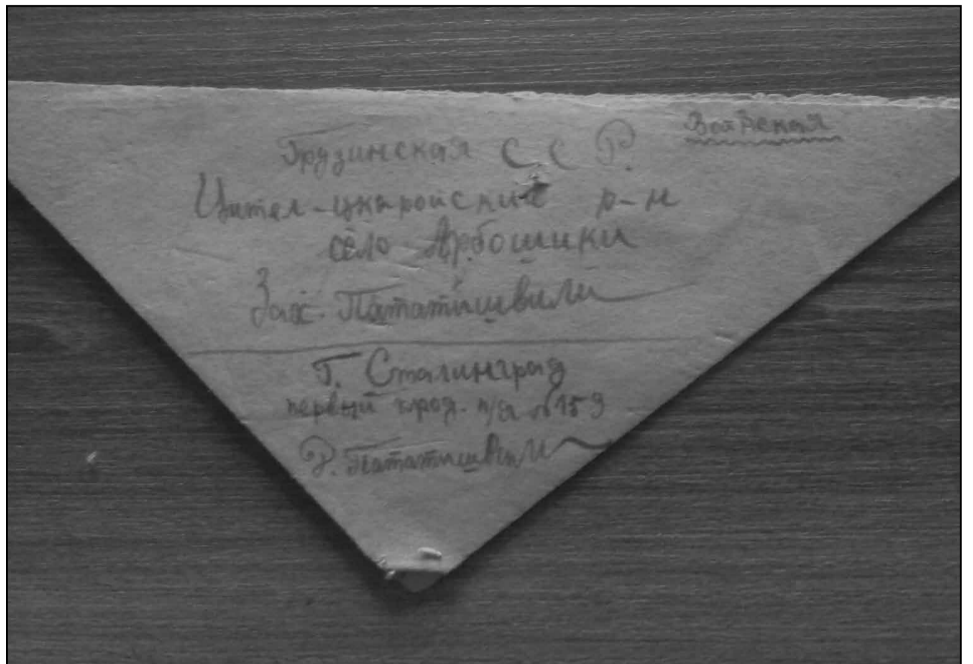 Воинская
Грузинская С.С Р.
Цител-цкаройский р-н
село Арбошики
Зах. Пататишвили
Г. Сталинград
первый п/я № 159
Р. Пататишвили